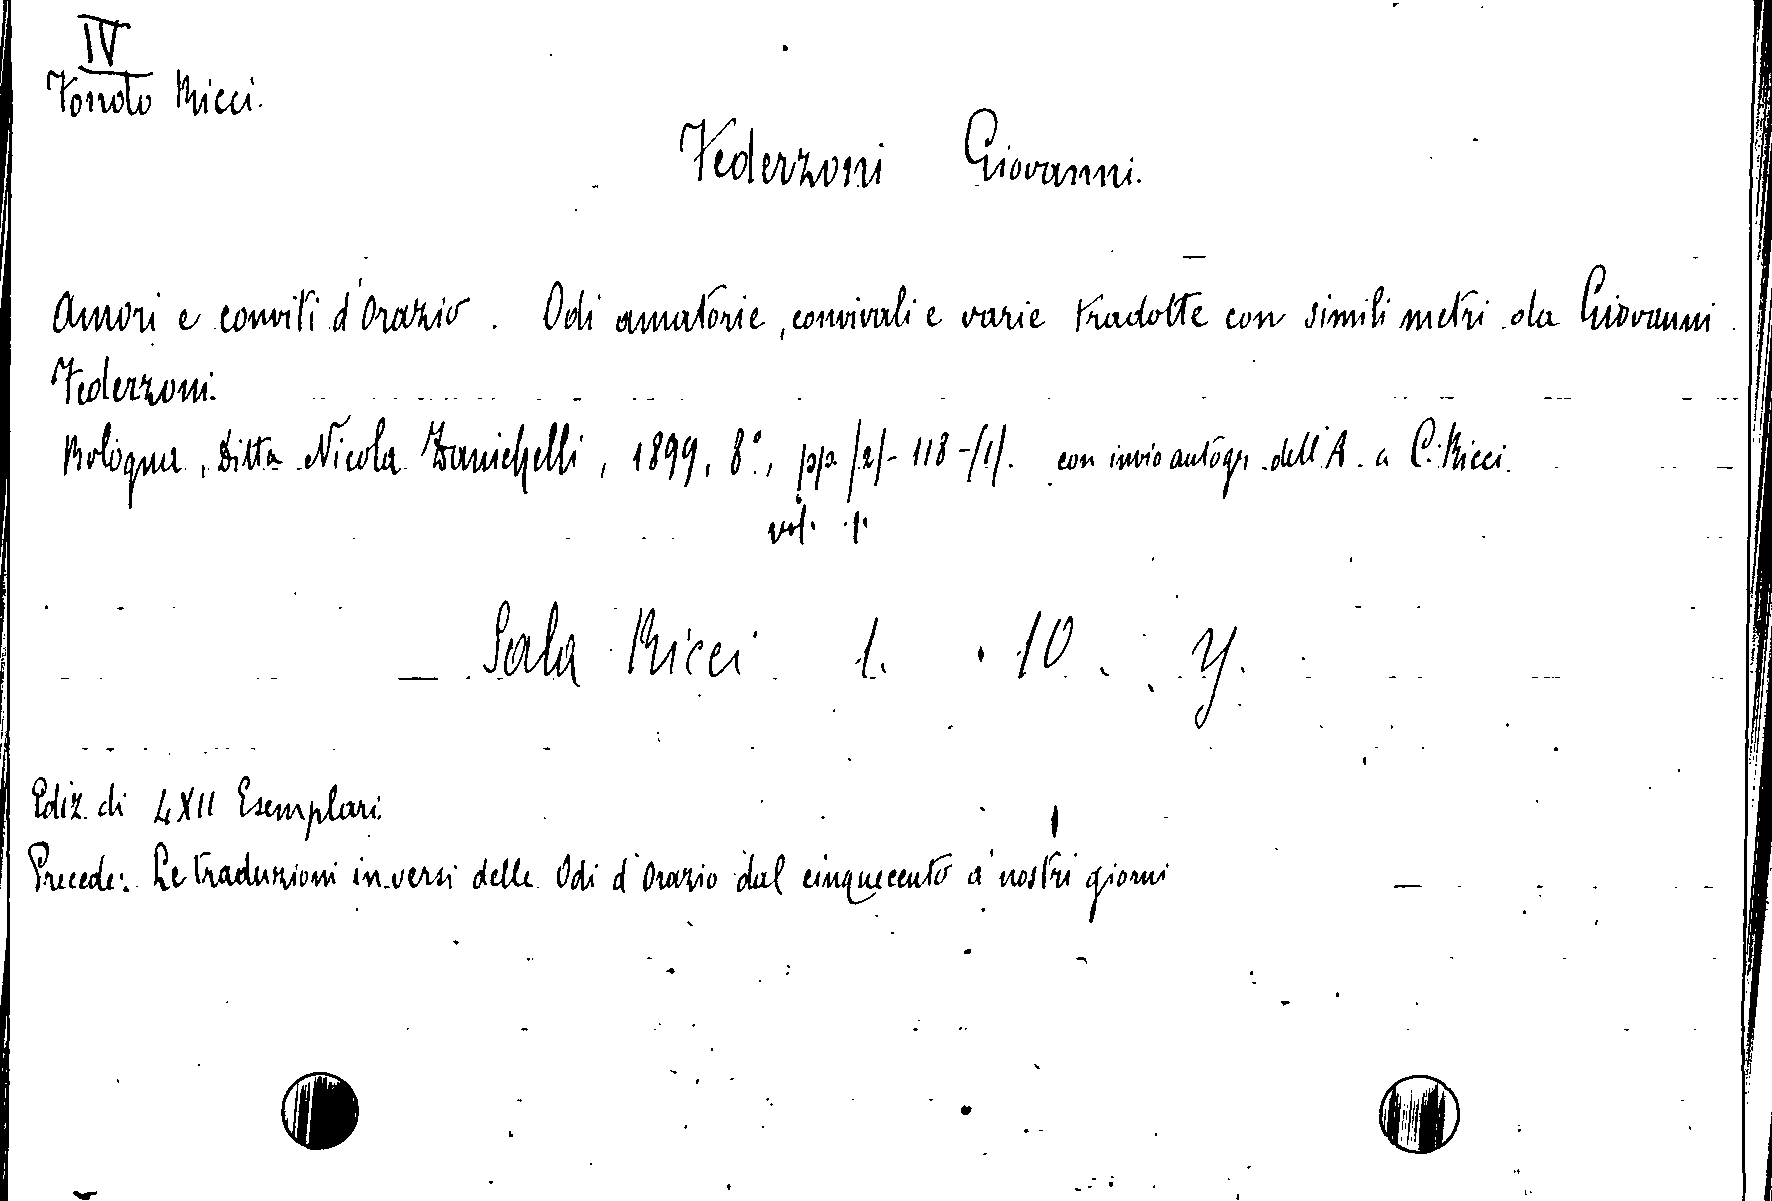 IV
Fondo Ricci.
Federzoni Giovanni.
Amori e conviti d'Orazio. Odi amatorie, convivali e varie tradotte con simili metri da Giovanni
Federzoni.
Bologna, Ditta Nicola Zanichelli, 1899, 8°, pp. /2/- 118 -/1/. con invio autogr. dell'A. a C. Ricci.
vol. 1.
Sala Ricci 1. 10. Y.
Ediz. di LXII Esemplari.
Precede: Le traduzioni in versi delle Odi d'Orazio dal cinquecento a' nostri giorni